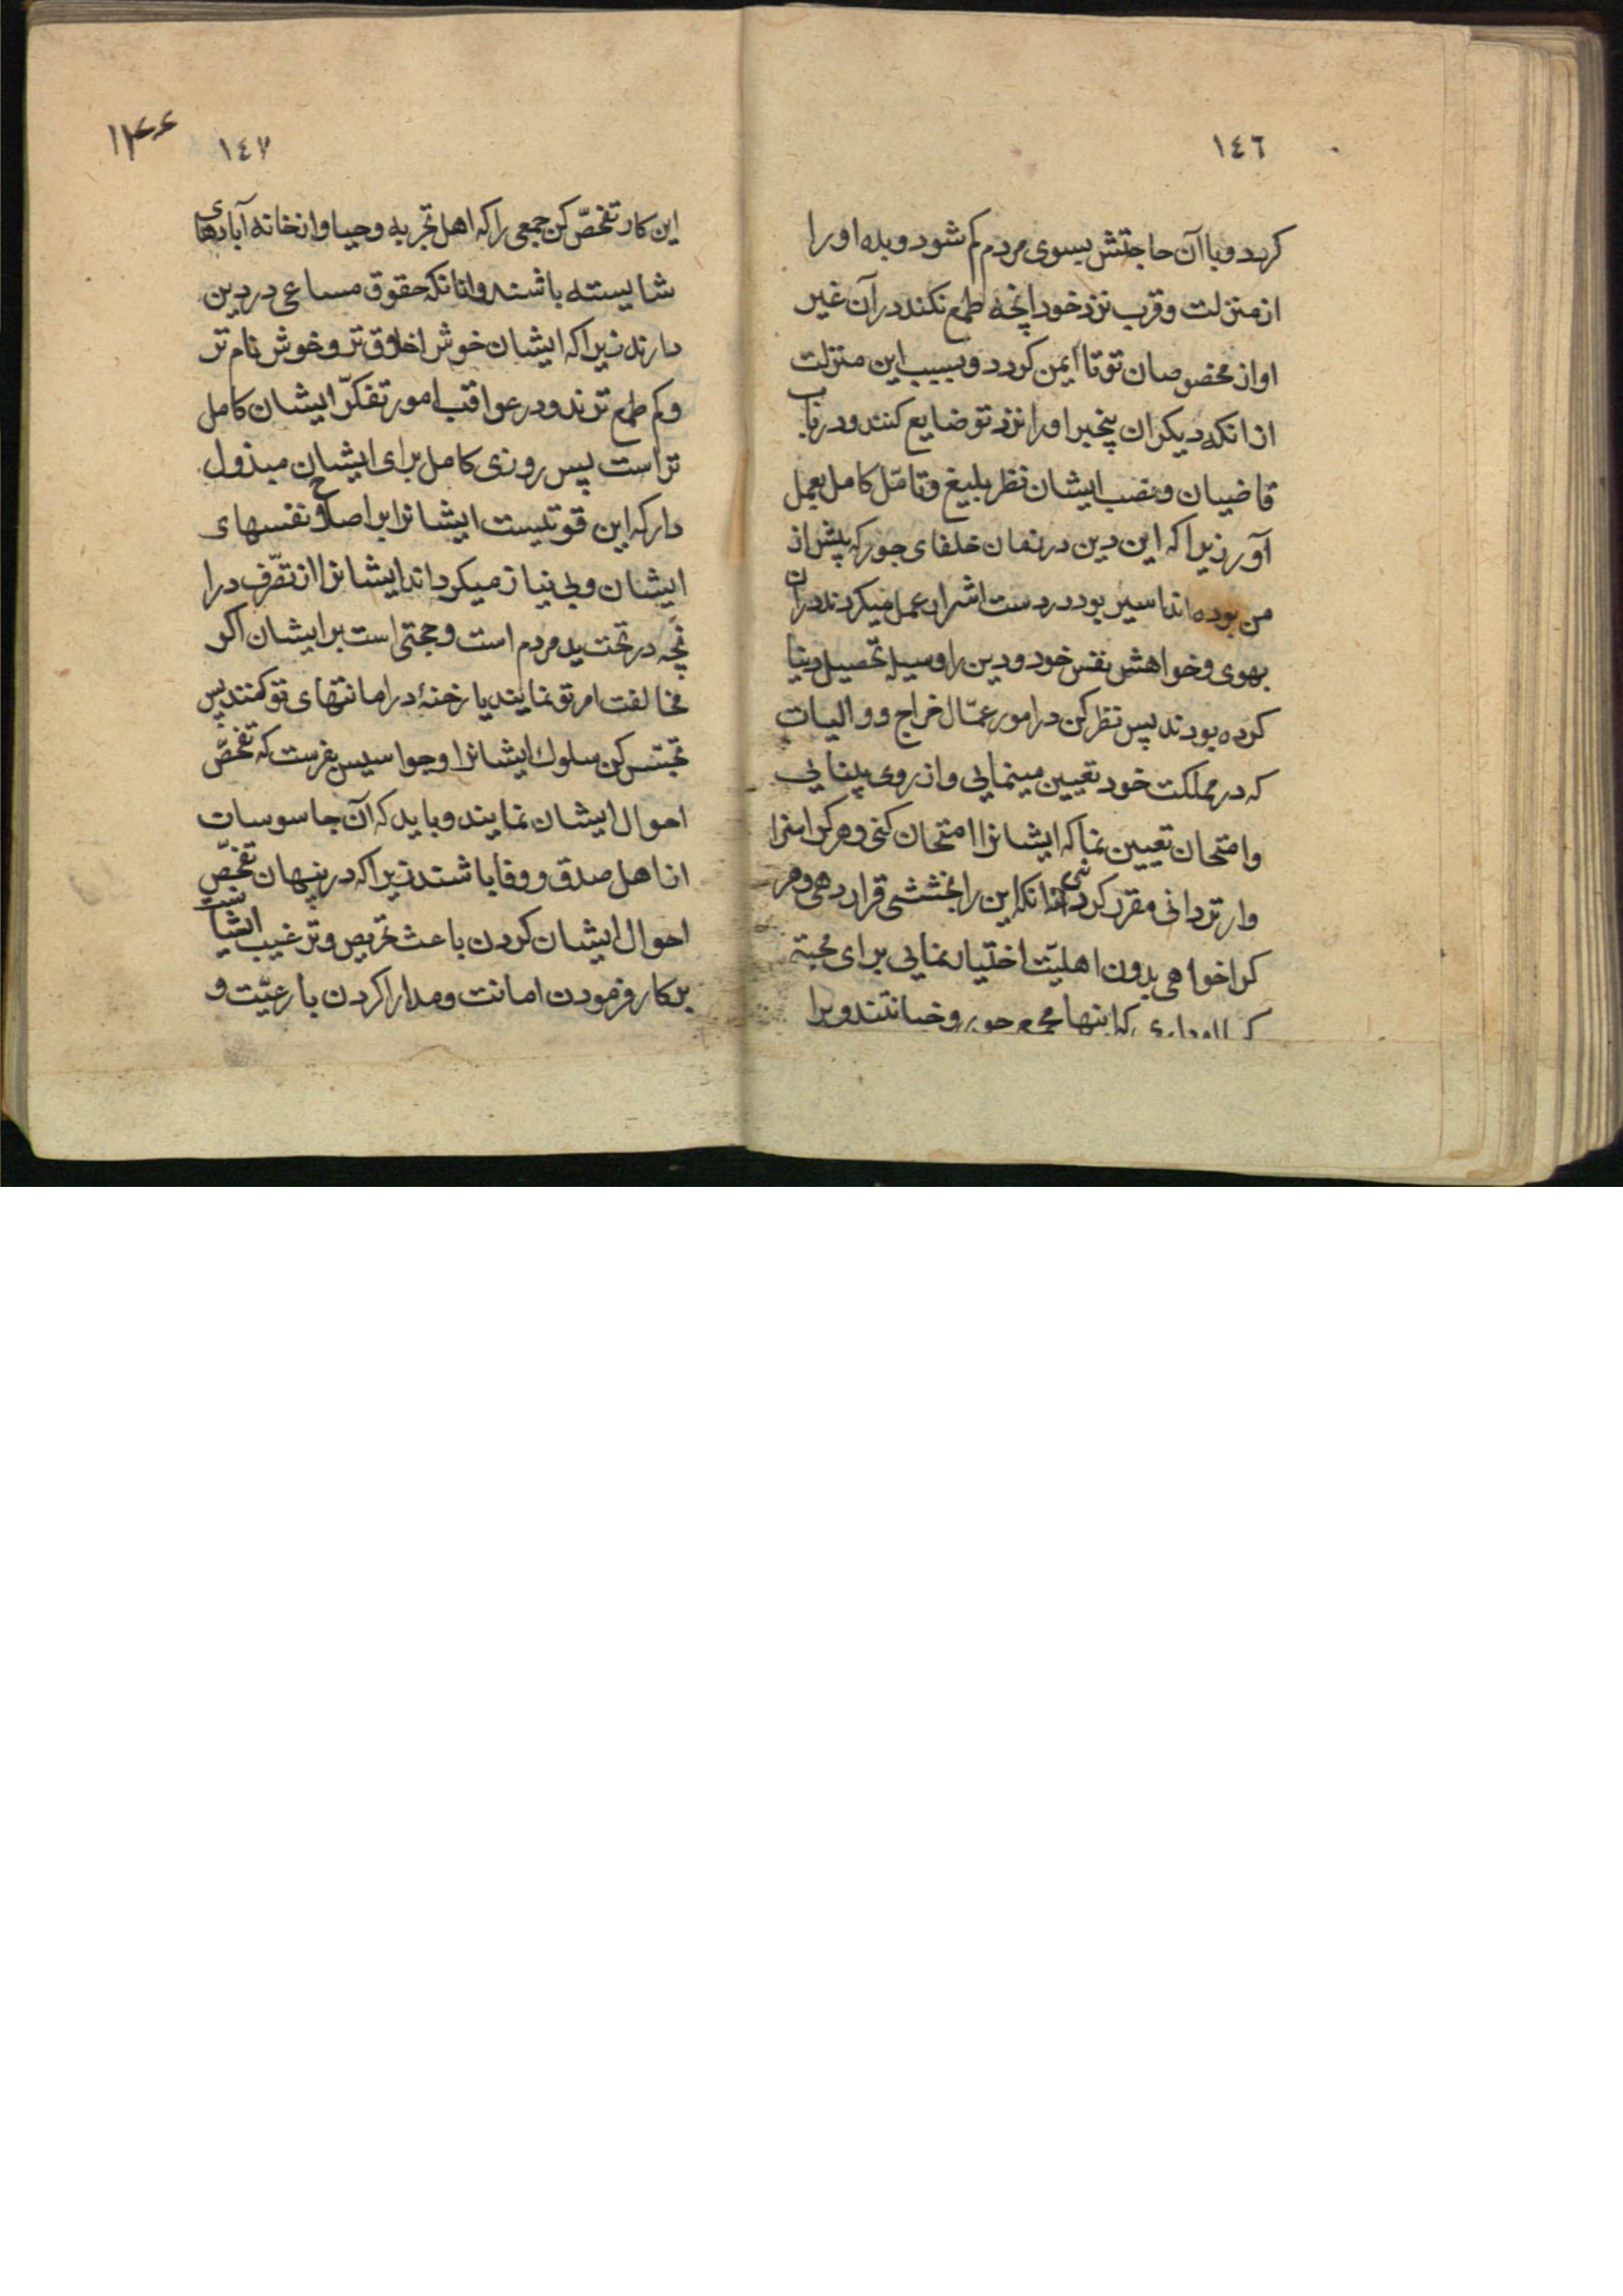 ١٤٦
کردد و با آن حاجتش بسوی مردم کم شود و بده او را
از منزلت و قرب نزد خود انچه طمع نکند در آن غیر
او از مخصوصان تو تا ایمن کردد و بسبب این منزلت
از انکه دیکران پیخبر او را نزد تو ضایع کنند و در باب
قاضییان و نصب ایشان نظر بلیغ و تامّل کامل بعمل
آور زیرا که این دین در زمان خلفای جور که پیش از
من بوده اند اسیر بود در دست اشرار عمل میکردند در ان
بهوی و خواهش نفس خود و دین را وسیله تحصیل دنیا
کرده بودند پس نظر کن در امور عمّال خراج و والیات
که در مملکت خود تعیین مینمایی و از روی بینایی
و امتحان تعیین نما که ایشانرا امتحان کنی و هر کرا سزا
وارتر دانی مقرر کردانی نه انکه این را بخششی قرار دهی و هر
کرا خواهی بدون اهلیّت اختیار نمایی برای محبتی
که با او داری که اینها مجمع جور و خیانتند و برا
١٤٧
١٤٤
این کار تفحّص کن جمعی را که اهل تجربه و حیا و از خانه آبادهای
شایسته باشند و انانکه حقوق مساعی در دین
دارند زیرا که ایشان خوش اخلاق تر و خوش نام تر
و کم طمع ترند و در عواقب امور تفکّر ایشان کامل
تر است پس روزی کامل برای ایشان مبذول
دار که این قوتیست ایشانرا بر اصلاح نفسهای
ایشان و بی نیاز میکرداند ایشانرا از تصّرف در ا
نچه در تحت ید مردم است و حجتی است بر ایشان اکر
مخالفت امر تو نمایند یا رخنهٔ در امانتهای تو کنند پس
تجسّس کن سلوک ایشانرا و جواسیس بفرست که تفحّص
احوال ایشان نمایند و باید که آن جاسوسات
از اهل صدق و وفا باشند زیرا که در پنهان تفحّص
احوال ایشان کردن باعث تحریص و ترغیب ایشانست
بر کار فرمودن امانت و مدارا کردن با رعیّت و